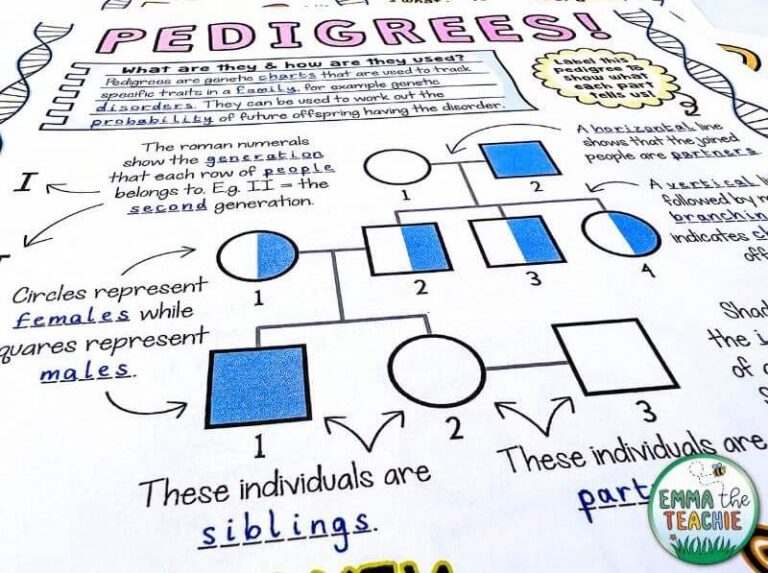 PEDIGREES!
What are they & how are they used?
Pedigrees are genetic charts that are used to track
specific traits in a family, for example genetic
disorders. They can be used to work out the
probability of future offspring having the disorder.
Label this
pedigree to
show what
each part
tells us!
The roman numerals
show the generation
that each row of people
belongs to. E.g. II = the
second generation.
I
A horizontal line
shows that the joined
people are partners
1
2
A vertical
followed by
branchin
indicates
off
Circles represent
females while
quares represent
males.
1
2
3
4
Shad
the
of
1
2
3
These individuals are
siblings.
These individuals are
part
EMMA the
TEACHIE